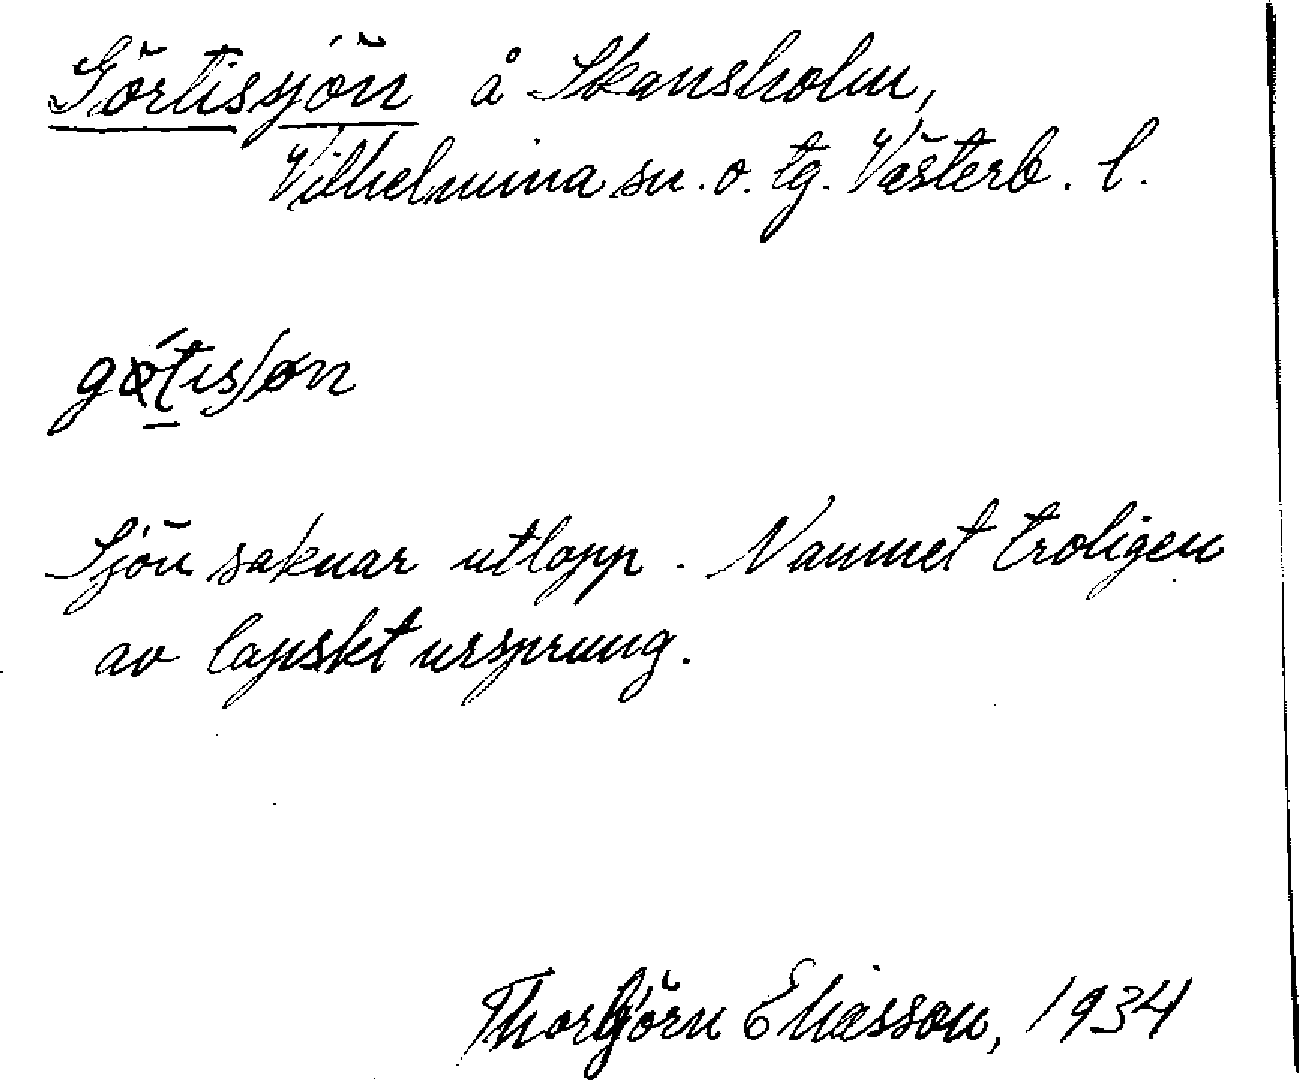 Görtisjön å Skansholm,
Vilhelmina sn. o. tg. Västerb. l.
Sjön saknar utlopp. Namnet troligen
av lapskt ursprung.
Thorbjörn Eliasson, 1934